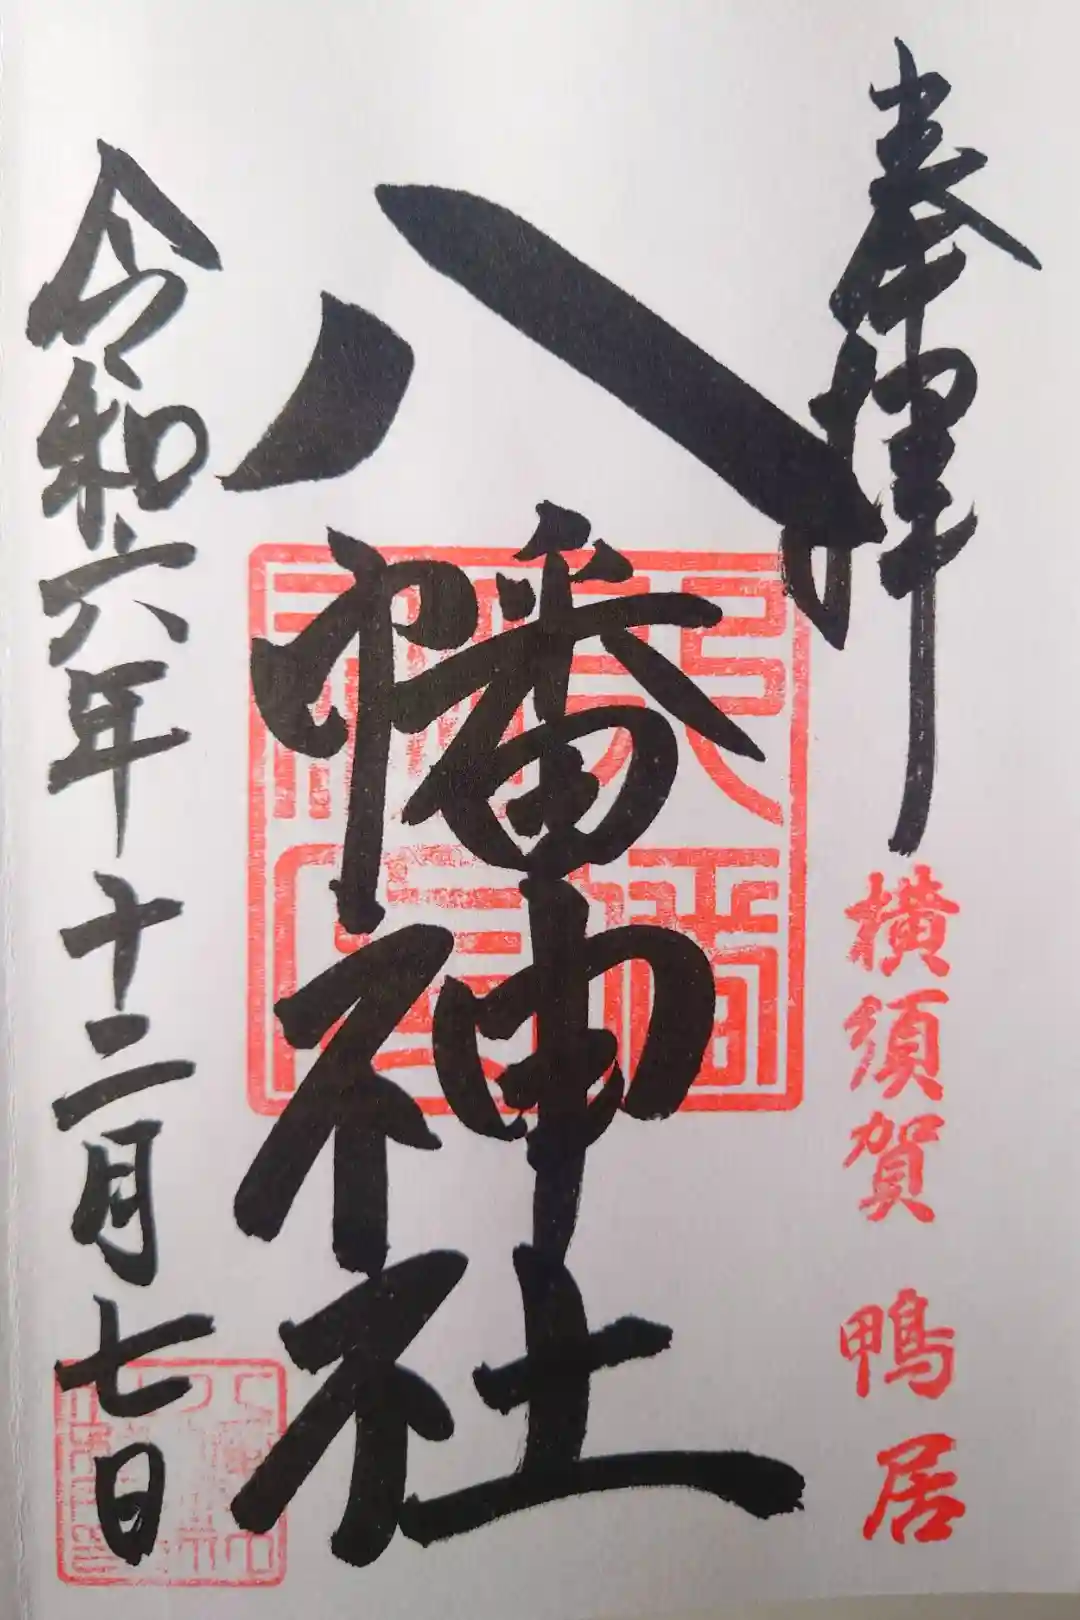 奉拝
横須賀 鴨居
八幡神社
令和六年十二月七日